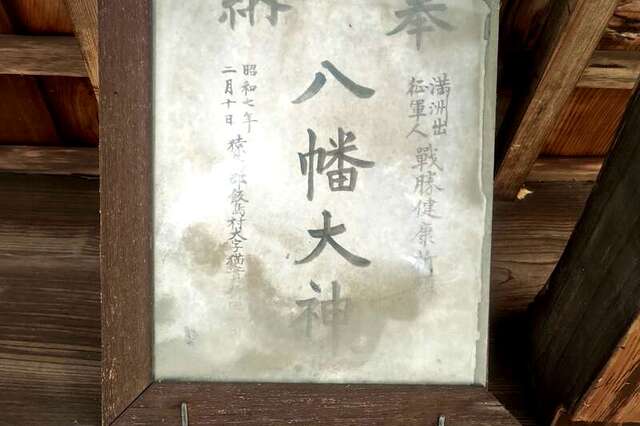 奉納
満洲出征軍人戰勝健康祈
八幡大神
昭和七年
二月十日
猿 郡飯島村大字猫